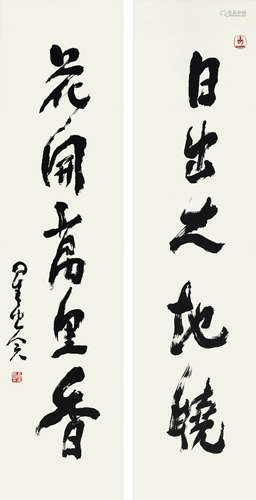 日出大地曉
花開萬里香